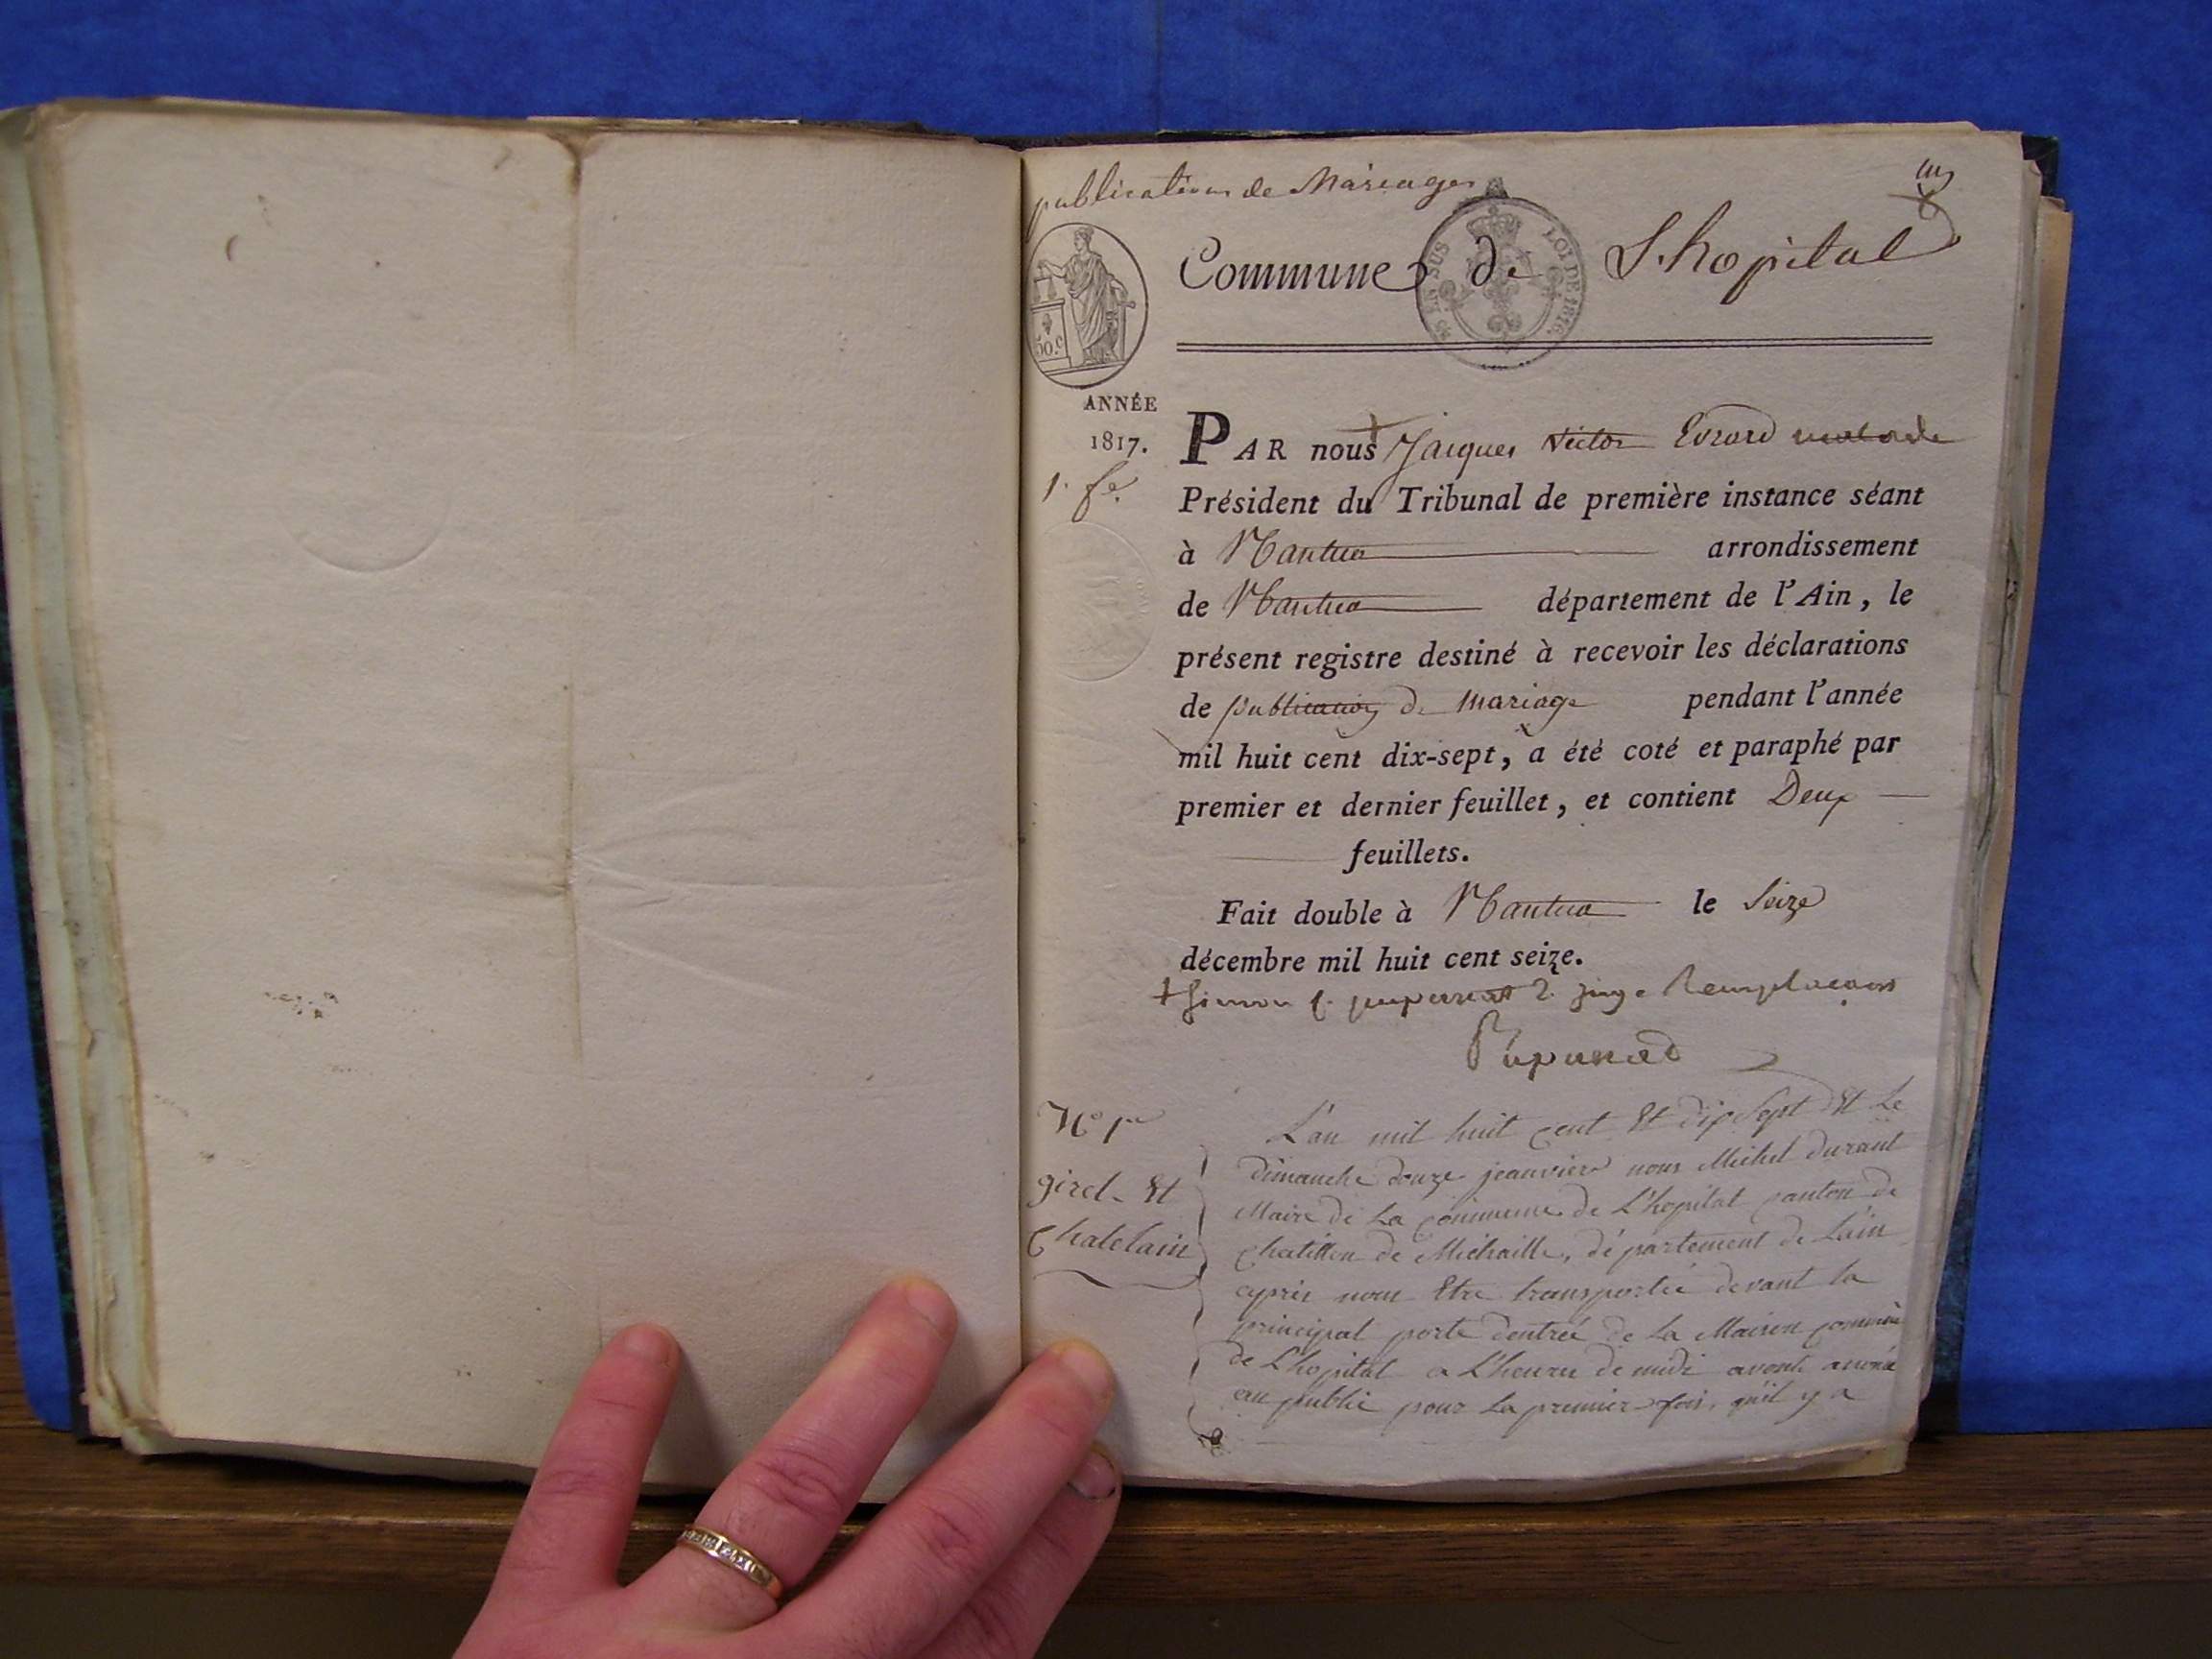 publications de Mariages
Commune de L'hopital
EN SUS LOI DE 1816.
50.c
ANNÉE
1817.
1. fe.
PAR nous Jacques Victor Evrard malade
Président du Tribunal de première instance séant
à Nantua arrondissement
de Nantua département de l'Ain, le
présent registre destiné à recevoir les déclarations
de publication de mariage pendant l'année
mil huit cent dix-sept, a été coté et paraphé par
premier et dernier feuillet, et contient Deux
feuillets.
Fait double à Nantua le Seize
décembre mil huit cent seize.
juge Remplacant
N° 1er
girel Et
Chatelain
L'an mil huit cent Et dix Sept Et Le
dimanche douze jeanvier nous Michel Durant
Maire de La commune de L'hopital canton de
Chatillon de Michaille, département de Lain
eyprès nous Etre transportée devant la
principal porte dentrée de La Maison commune
de L'hopital a L'heure de midi avont anoncé
au public pour La premier fois, quil y a